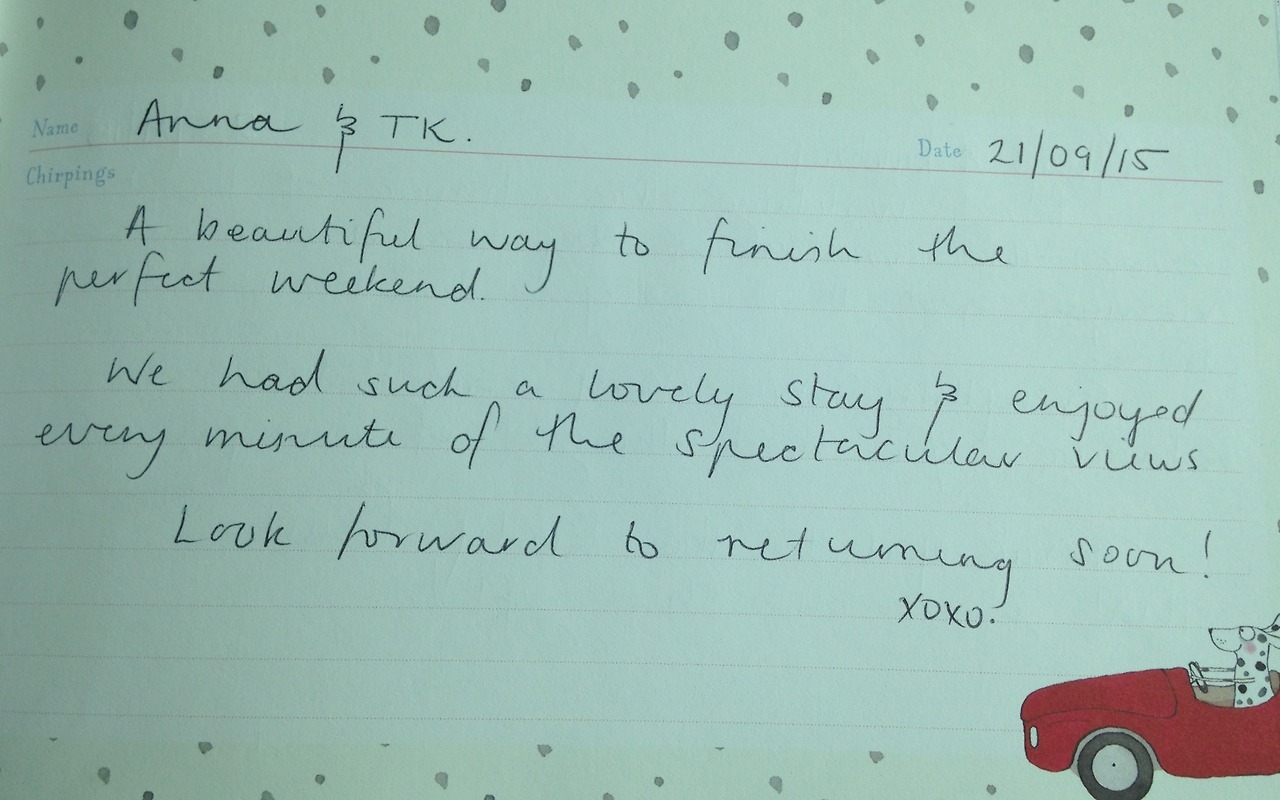 Name Anna & TK. Date 21/09/15
Chirpings
A beautiful way to finish the
perfect weekend.
We had such a lovely stay & enjoyed
every minute of the spectacular views
Look forward to returning soon!
xoxo.